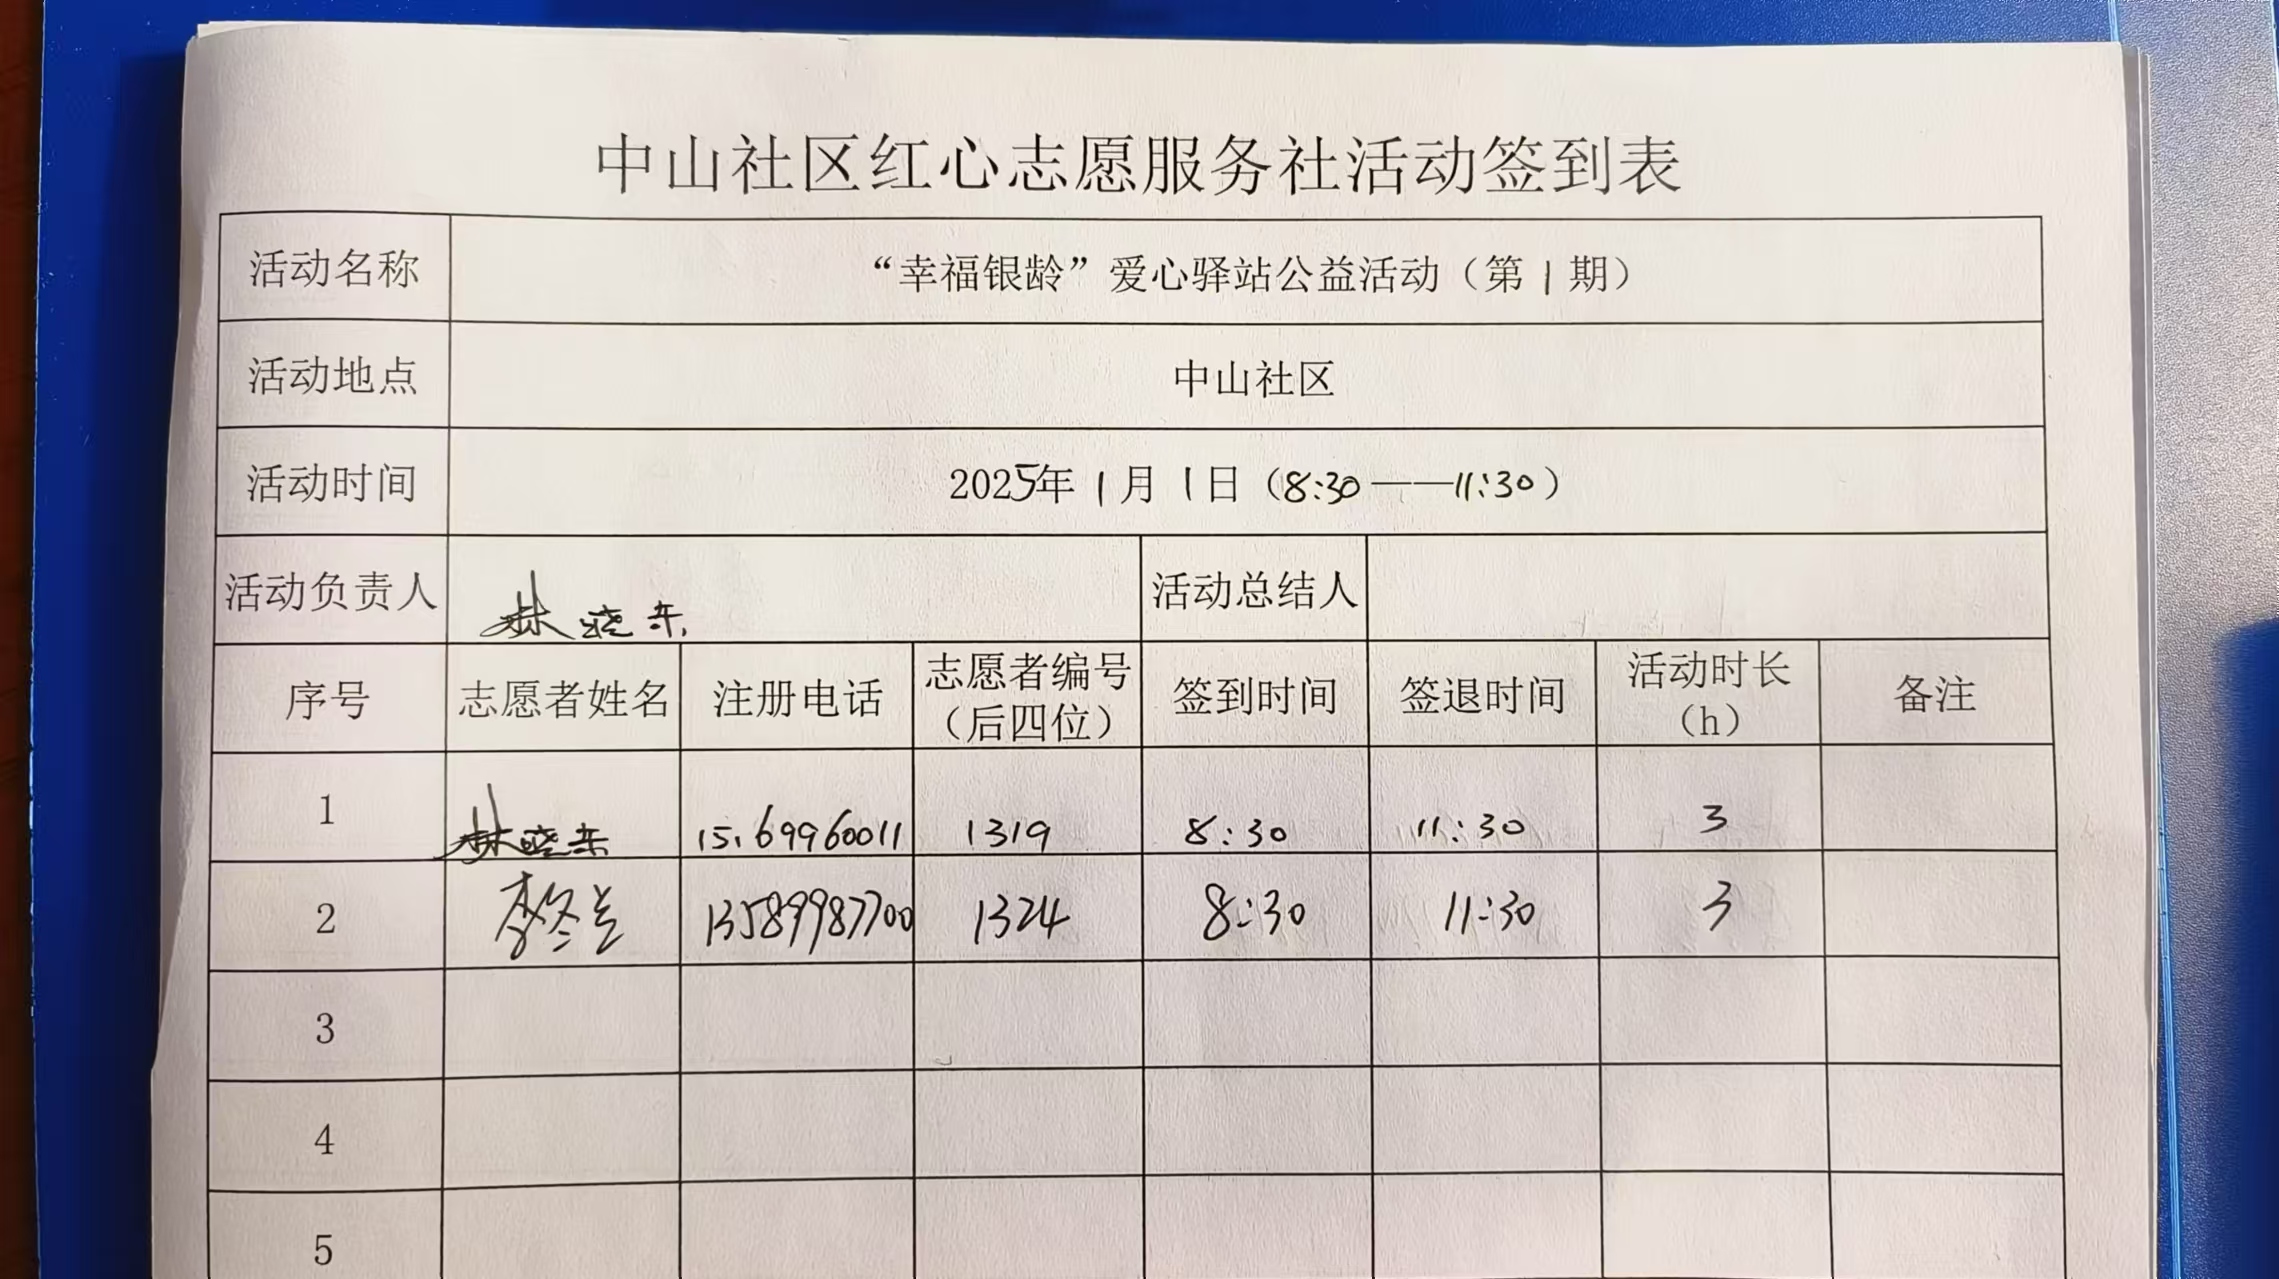 中山社区红心志愿服务社活动签到表
活动名称 “幸福银龄”爱心驿站公益活动（第1期）
活动地点 中山社区
活动时间 2025年1月1日（8:30——11:30）
活动负责人 林晓东 活动总结人
序号 志愿者姓名 注册电话 志愿者编号（后四位） 签到时间 签退时间 活动时长（h） 备注
1 林晓东 15169960011 1319 8:30 11:30 3
2 李冬兰 13589987700 1324 8:30 11:30 3
3
4
5